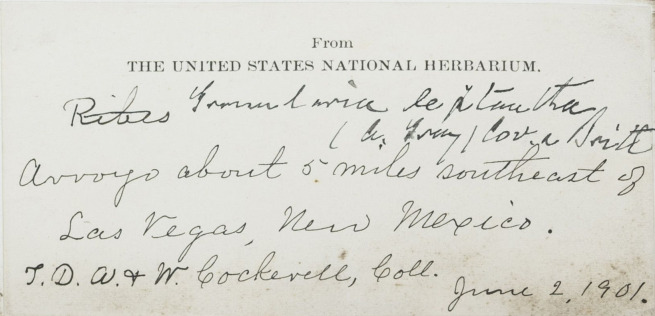 From
THE UNITED STATES NATIONAL HERBARIUM.
Ribes Grossularia leptantha
(A. Gray) Cov. & Britt
Arroyo about 5 miles southeast of
Las Vegas, New Mexico.
T. D. A. & W. Cockerell, Coll.
June 2, 1901.